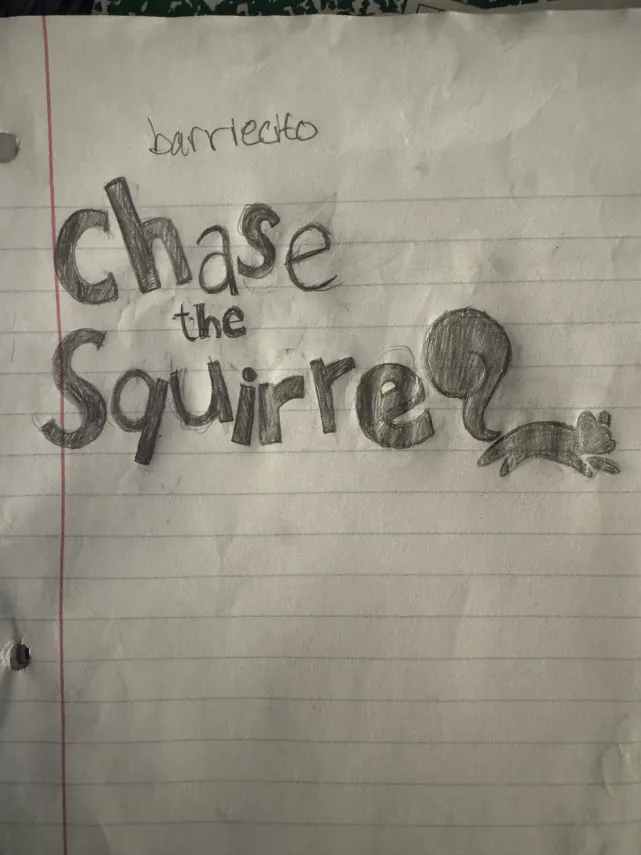 barriecito
Chase
the
Squirrel